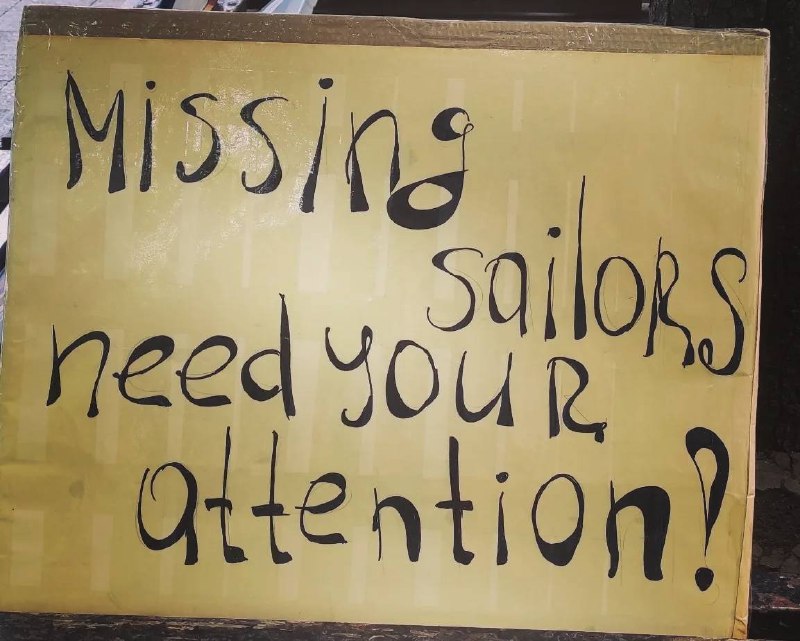 Missing
sailors
need your
attention!